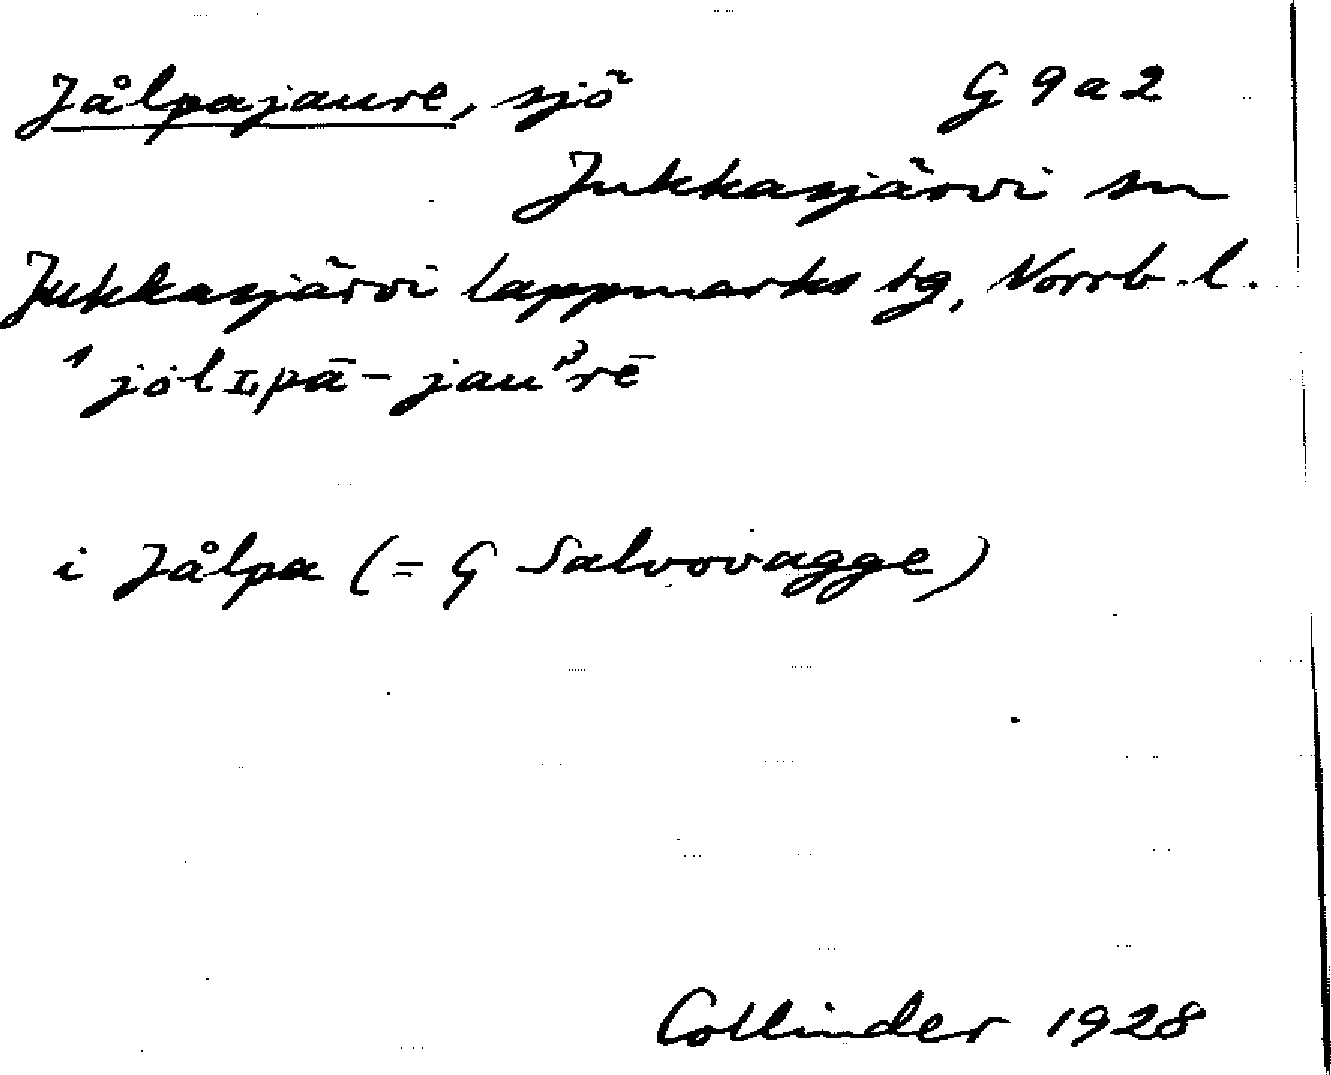 Jålpajaure, sjö G 9 a 2
Jukkasjärvi sn
Jukkasjärvi lappmarks tg, Norrb. l.
i Jålpa (= G Salvovagge)
Collinder 1928